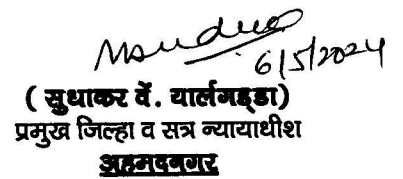 6/5/2024
( सुधाकर वें. यार्लगड्डा)
प्रमुख जिल्हा व सत्र न्यायाधीश
अहमदनगर